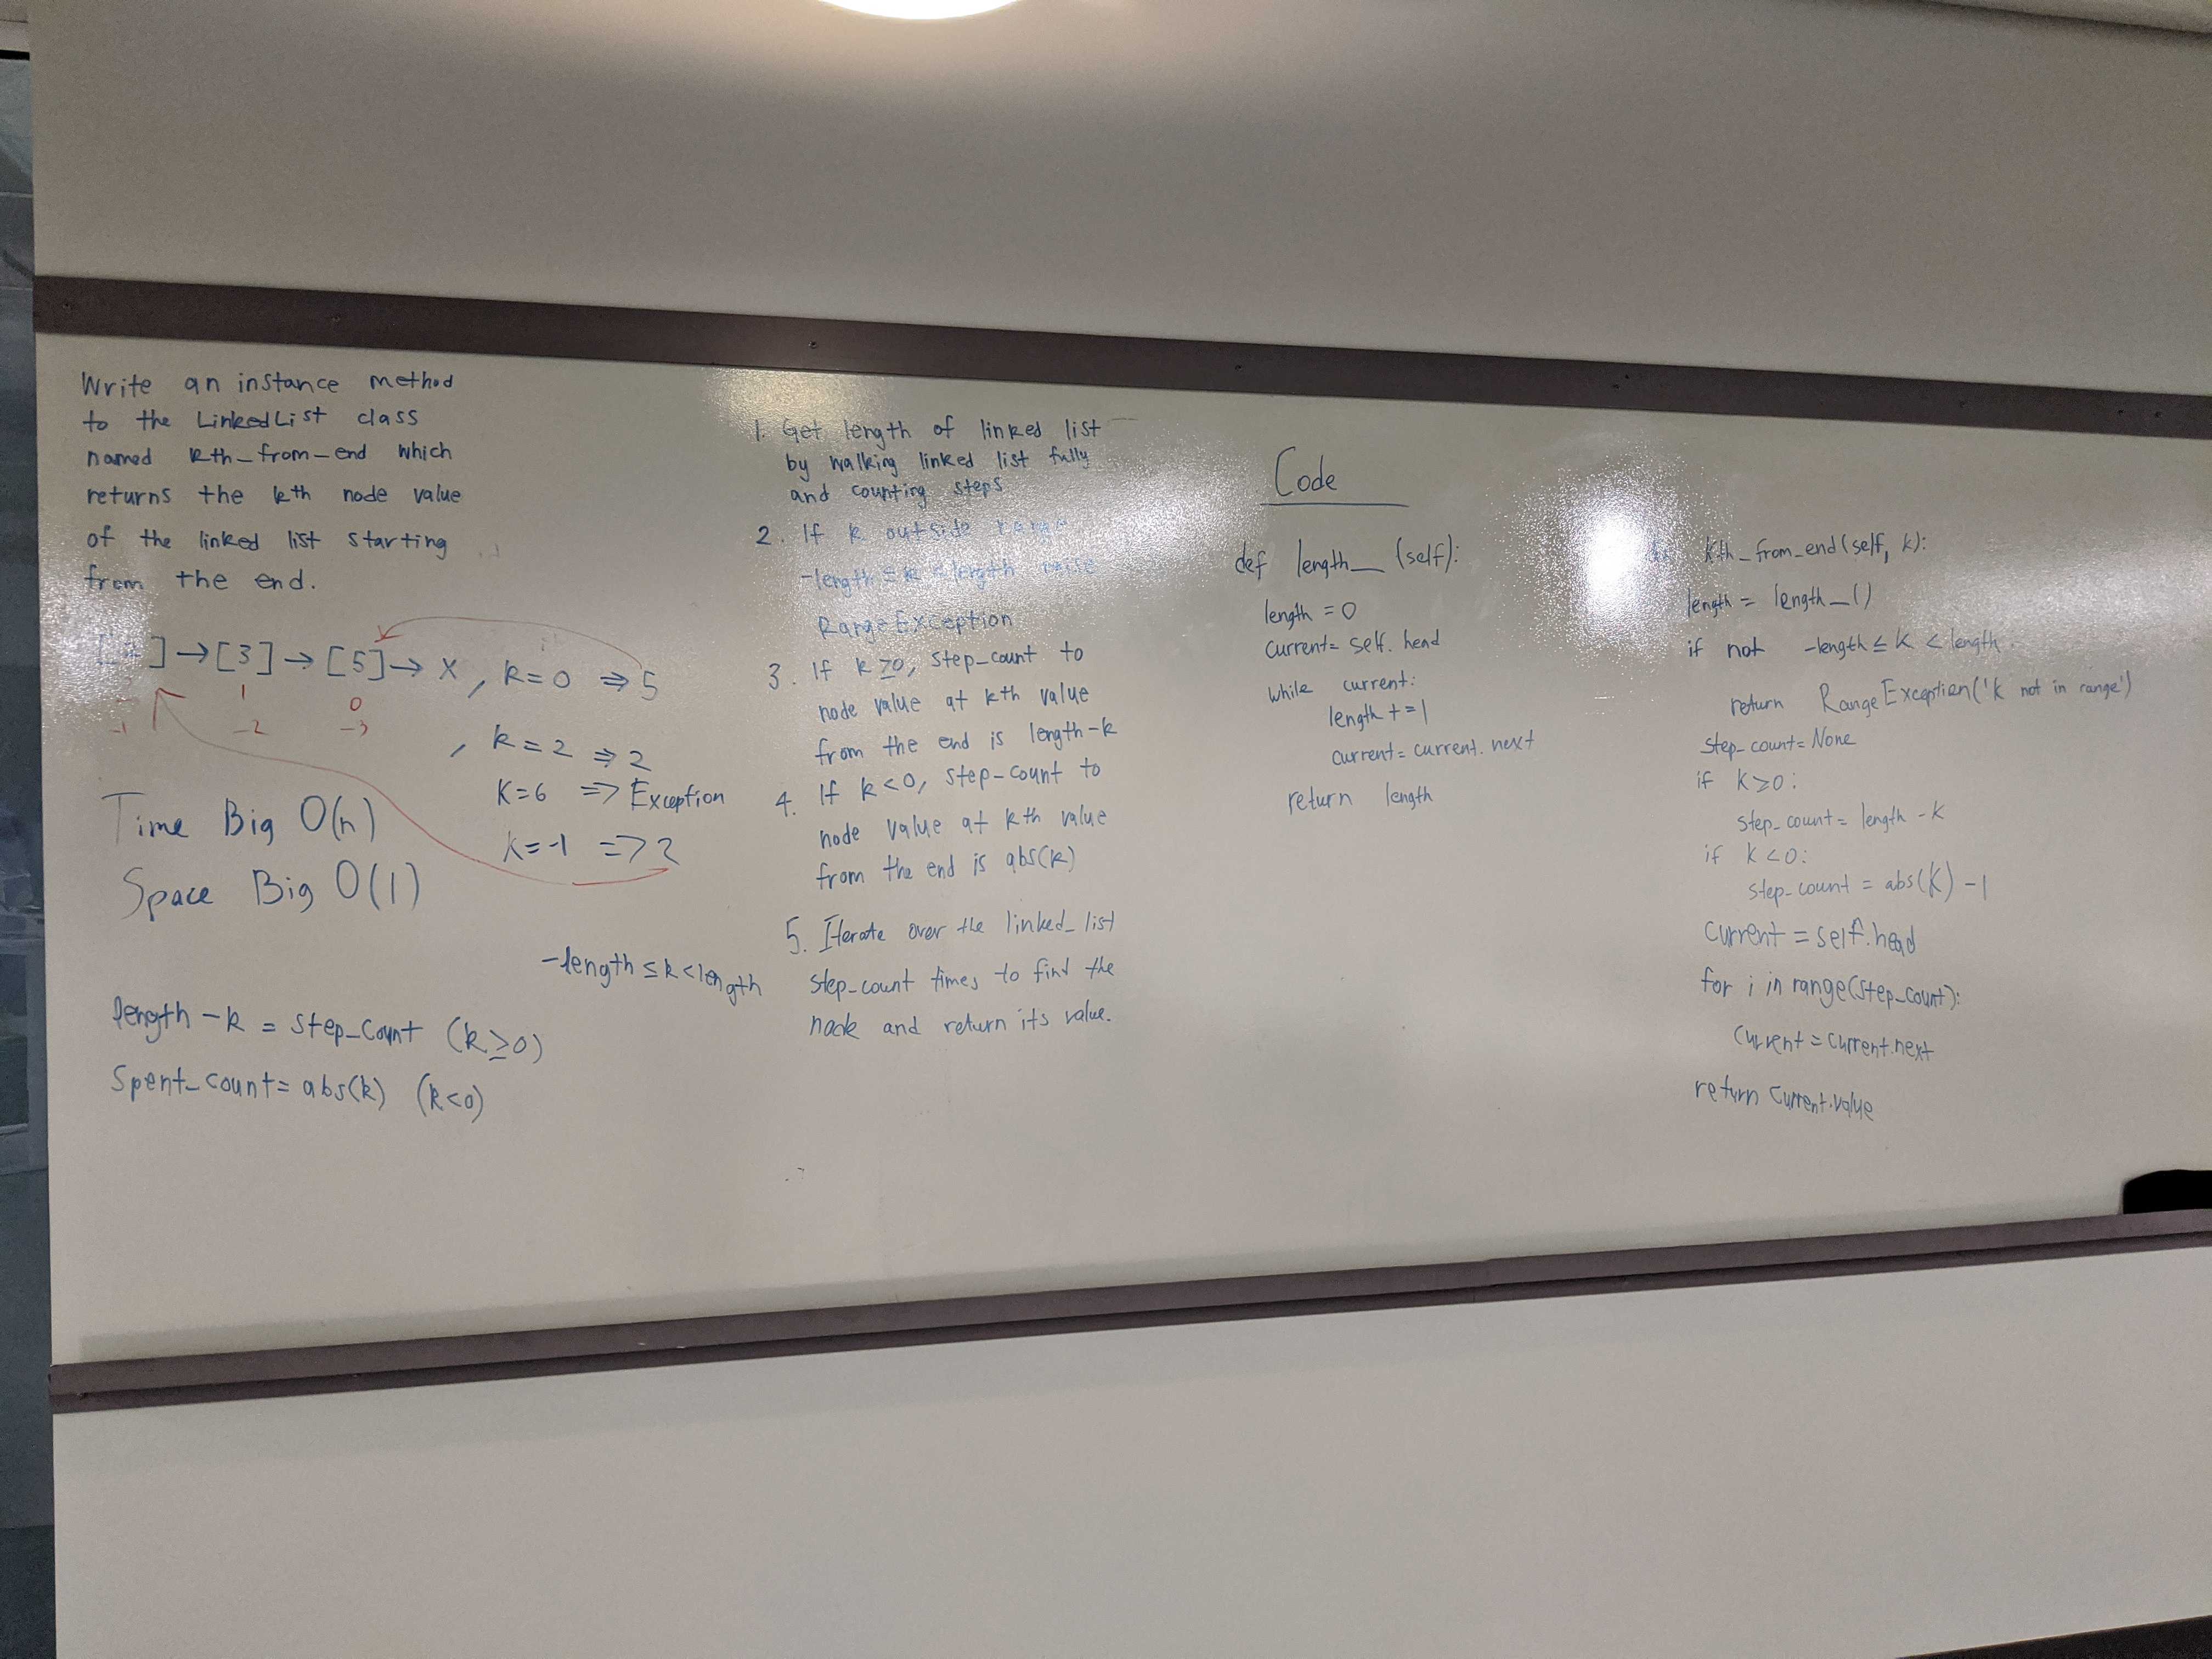 Write an instance method
to the LinkedList class
named kth_from_end which
returns the kth node value
of the linked list starting
from the end.
[2] → [3] → [5] → X, k=0 ⇒ 5
1 0
-1 -2 -3
, k=2 ⇒ 2
K=6 => Exception
K=-1 => 2
Time Big O(n)
Space Big O(1)
-length ≤ k < length
length - k = step_count (k≥0)
Spent_count = abs(k) (k<0)
1. Get length of linked list
by walking linked list fully
and counting steps
2. If k outside range
-length ≤ k < length raise
RangeException
3. If k ≥0, step_count to
node value at kth value
from the end is length-k
4. If k<0, step-count to
node value at kth value
from the end is abs(k)
5. Iterate over the linked_list
step_count times to find the
node and return its value.
Code
def length_ (self):
length = 0
current = self.head
while current:
length += 1
current = current.next
return length
Kth_from_end(self, k):
length = length_()
if not -length ≤ K < length.
return RangeException('k not in range')
step_count = None
if K≥0:
step_count = length - K
if K<0:
step_count = abs(K) - 1
current = self.head
for i in range(step_count):
current = current.next
return current.value